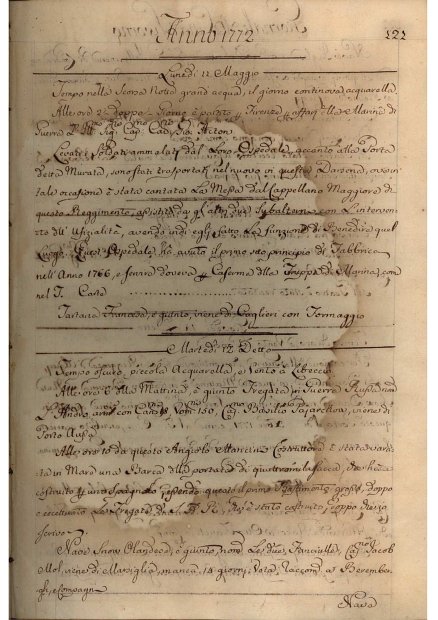 Anno 1772
121
Lunedì 11 Maggio
Tempo nella Scorsa Notte grand acqua, il giorno continova acquarella
Alle ore 2 doppo Giorno è partito p Firenze p affari della Marina di
Guerra l'Ill. Sig. Cap. Cav. Acton.
Soldati ammalati dal Loro Ospedale accanto alla Porta
detta Murata, sono stati trasportati nel nuovo di questa Darsena, ed in
tale occasione è stata cantata La Messa dal Cappellano Maggiore di
questo Reggimento, gl'altri due Subalterni con L'interven-
to dell' Ufizialità, avendo indi egli fatto Le funzioni di Benedire quel
Luogo. Quest' Ospedale ha avuto il primo suo principio di Fabbrica
nell'Anno 1766, e servir doveva p Caserma della Truppa di Marina, con
nel T. Carte
Tartana Francese, è giunto, viene di Caglieri con Formaggio
Martedì 12 Detto
Tempo scuro, piccola Acquarella, e Vento a Libeccio
Alle ore 6 della Mattina, è giunto Fregata di Guerra
S. Andrea, arm. con Cann. Vom. 150, Cap. Basilio viene di
Porto
Alle ore 10 da questo Angiolo Martino Costruttore è stata vara-
ta in Mare una Barca della portata di quattromila sacca, che ha
costruito p uno Spagnolo, essendo questo il primo Bastimento grosso, doppo
è stato costruito, doppo
scrivo
Nave Snow Olandese, è giunto, nom. Le due Fanciulle, Cap. Jacob
Mol, viene di Marsiglia, manca 14 giorni, Vota, Raccom. a Berember-
gh, e Compagni
Nave